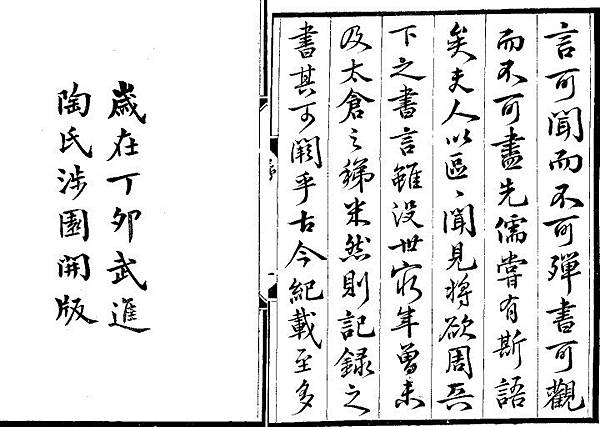 言可聞而不可殫書可觀
而不可盡先儒嘗有斯語
矣夫人以區〻聞見將欲周天
下之書言雖没世窮年曾未
及太倉之稊米然則記錄之
書其可闕乎古今紀載至多
序
一
歲在丁卯武進
陶氏涉園開版